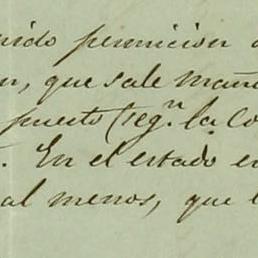 nido permicion
n, que sale maña
puerto (seg.n la Co
. En el estado en
al menos, que l